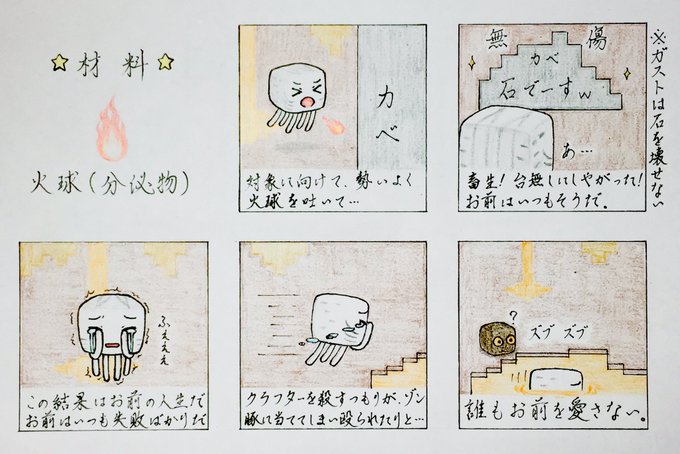 ☆材料☆
火球(分泌物)
カベ
対象に向けて、勢いよく
火球を吐いて…
無傷
カベ
石でーすw
あ…
畜生!台無しにしやがった!
お前はいつもそうだ。
※ガストは石を壊せない
ふぇぇぇ
この結果はお前の人生だ
お前はいつも失敗ばかりだ
クラフターを殺すつもりが、ゾン
豚に当ててしまい殴られたりと…
?
ズブズブ
誰もお前を愛さない。